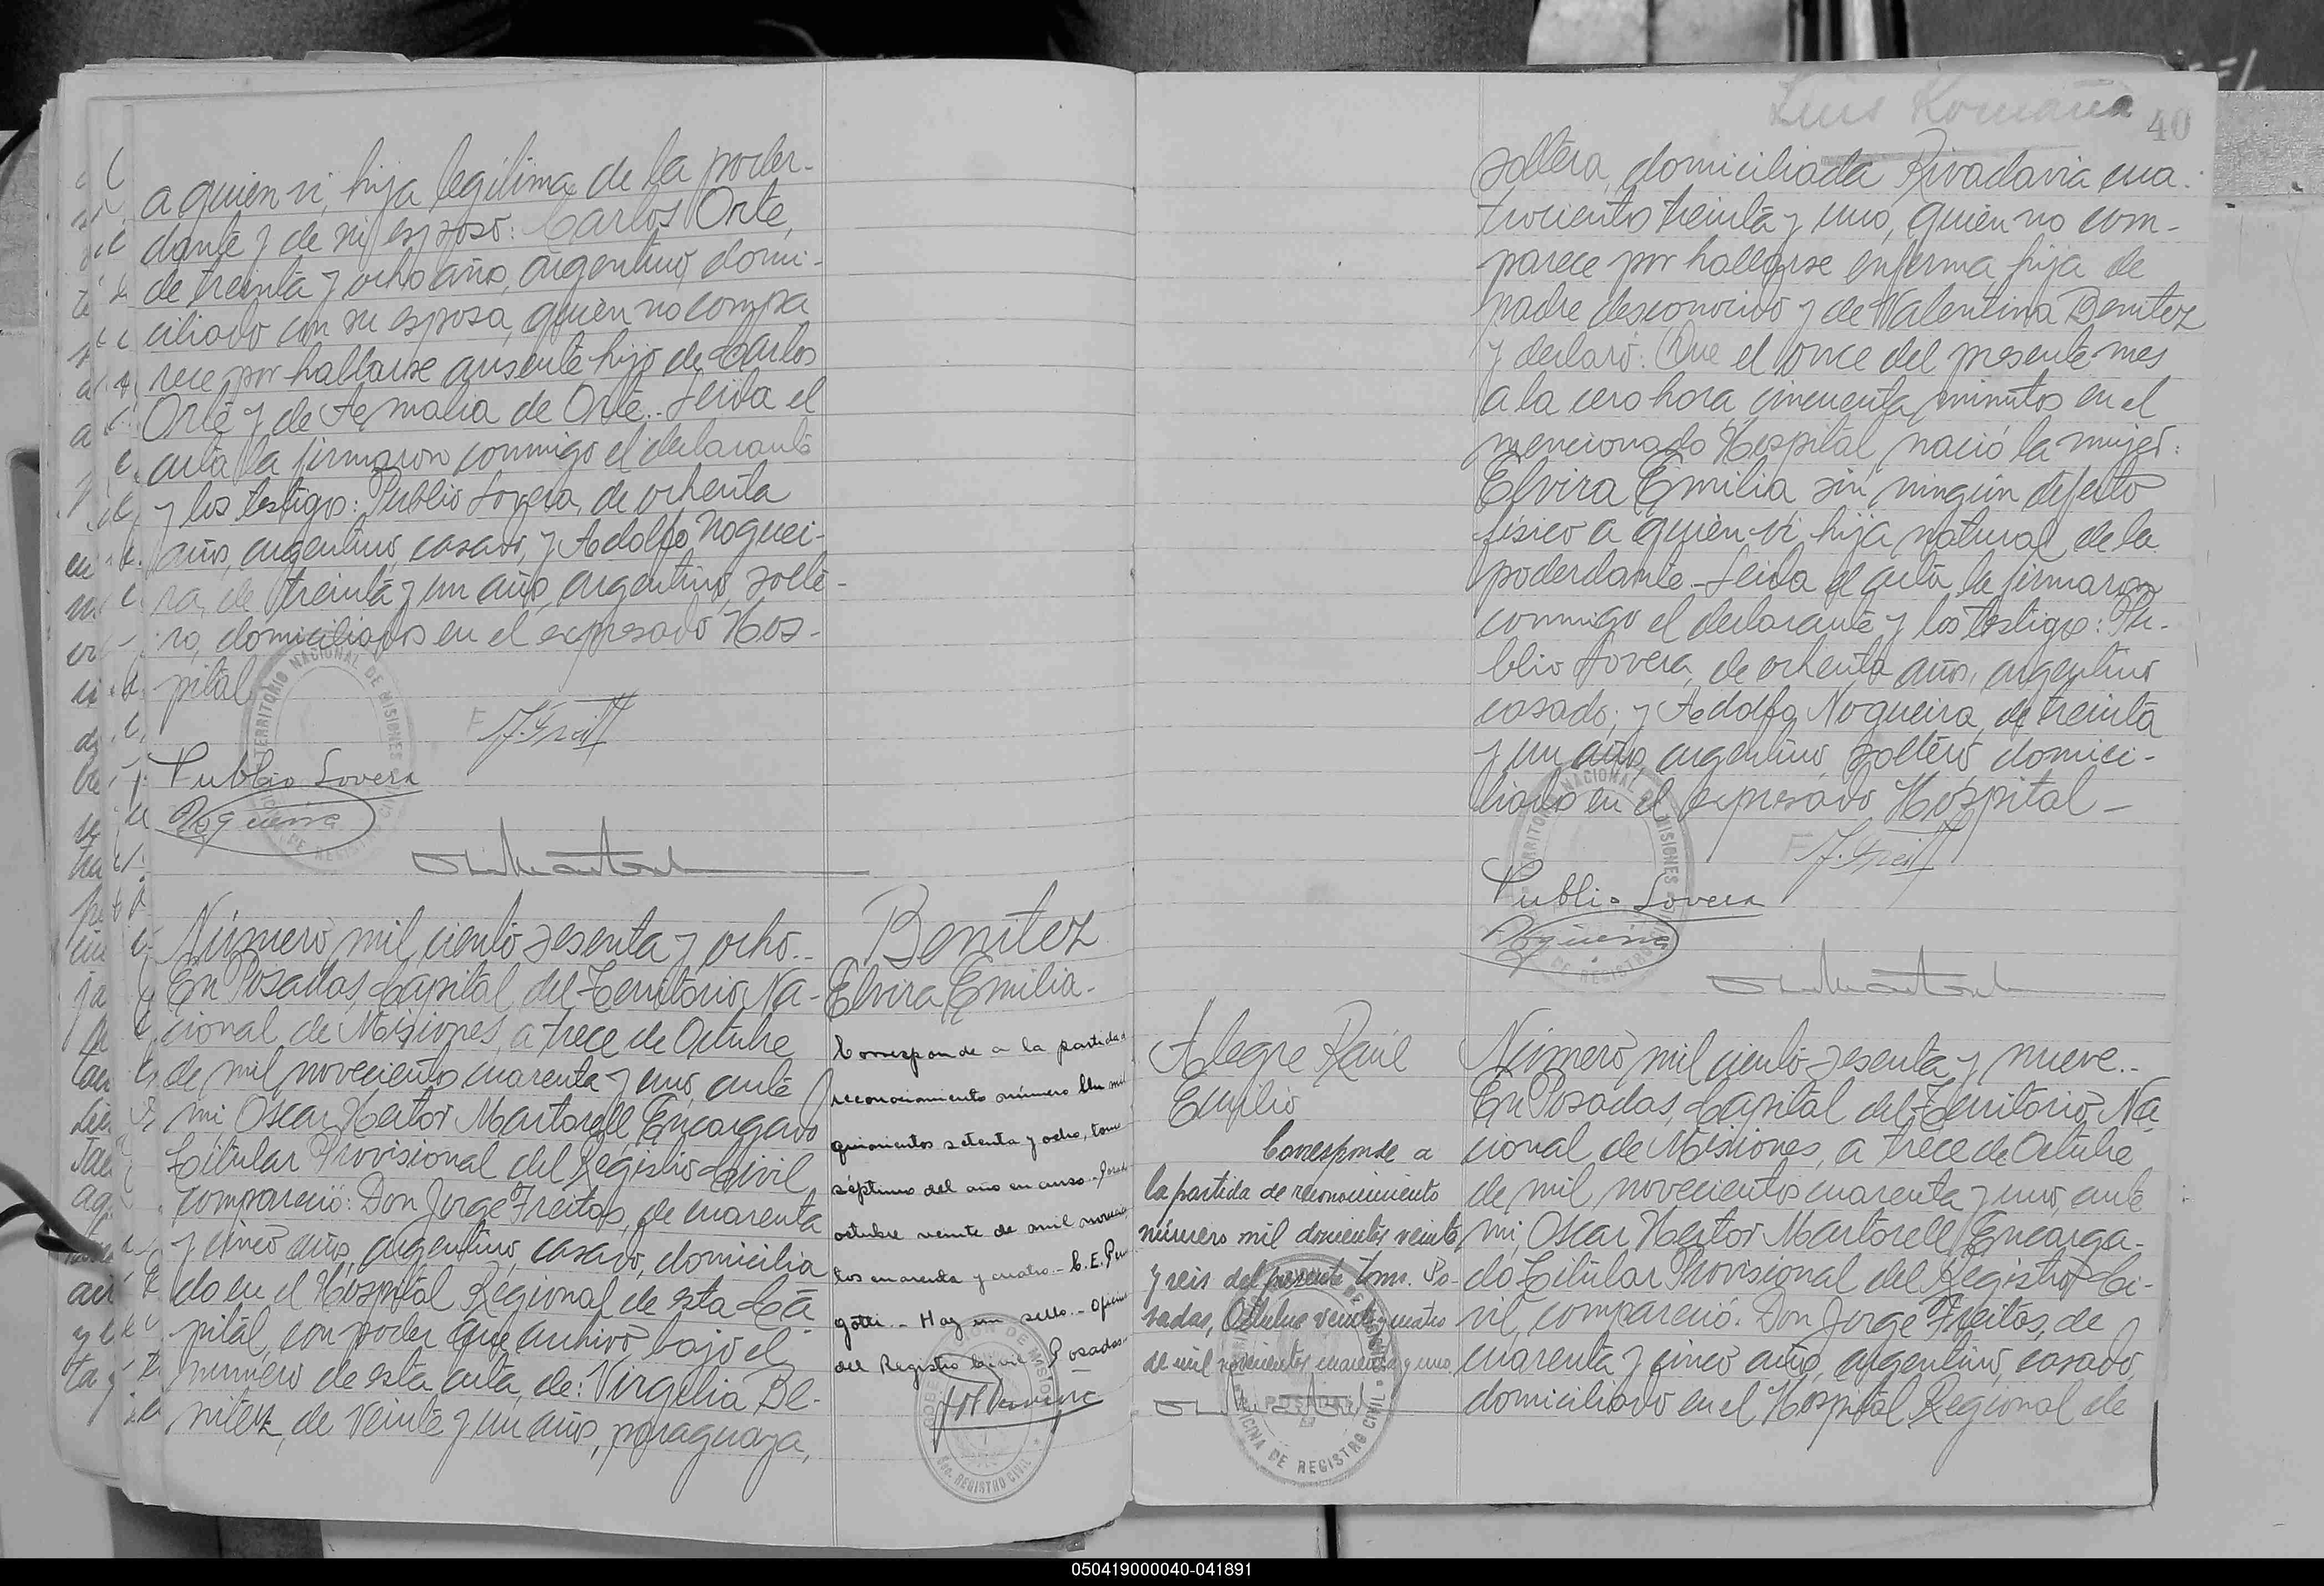 a quien vi, hija legítima de la poder-
dante y de su esposo: Carlos Orte,
de treinta y ocho años, argentino, domi-
ciliado con su esposa, quien no compa
rece por hallarse ausente hijo de Carlos
Orte y de Amalia de Orte.. Leida el
acta la firmaron conmigo el declarante
y los testigos: Publio Lovera, de ochenta
años, argentino, casado, y Adolfo Noguei-
ra, de treinta y un años, argentino, solte-
ro, domiciliados en el expresado Hos-
pital.
TERRITORIO NACIONAL DE MISIONES
Publio Lovera
Nogueira
Número mil ciento sesenta y ocho..
En Posadas, Capital del Territorio Na-
cional de Misiones, a trece de Octubre
de mil novecientos cuarenta y uno, ante
mi, Oscar Hector Martorell, Encargado
Titular Provisional del Registro Civil
compareció: Don Jorge Freitas, de cuarenta
y cinco años, argentino, casado, domicilia
do en el Hospital Regional de esta Ca
pital, con poder que archivo bajo el
numero de esta acta, de: Virgilia Be-
nitez, de veinte y un años, paraguaya,
Benitez
Elvira Emilia-
Corresponde a la partida
reconocimiento número Un mil
quinientos setenta y ocho, tomo
séptimo del año en curso.- Posadas
octubre veinte de mil novecien
tos cuarenta y cuatro.- C.E.
gotti.- Hay un sello.- Oficina
del Registro Civil- Posadas.-
REGISTRO CIVIL
Luis Romaña
40
soltera, domiciliada Rivadavia cua-
trocientos treinta y uno, quien no com-
parece por hallarse enferma, hija de
padre desconocido y de Valentina Benitez
y declaro: Que el once del presente mes
a la cero hora, cincuenta minutos en el
mencionado Hospital, nació la mujer:
Elvira Emilia, sin ningún defecto
físico a quien vi, hija natural de la
poderdante.- Leida el acta la firmaron
conmigo el declarante y los testigos: Pu-
blio Lovera, de ochenta años, argentino
casado; y Adolfo Nogueira, de treinta
y un años, argentino, soltero, domici-
liados en el expresado Hospital-
Publio Lovera
Nogueira
Alegre Raúl
Emilio
Corresponde a
la partida de reconocimiento
número mil doscientos veinte
y seis del presente tomo. Po-
sadas, Octubre veinte y cuatro
de mil novecientos cuarenta y uno
POSADAS
OFICINA DE REGISTRO CIVIL
Número mil ciento sesenta y nueve..
En Posadas, Capital del Territorio Na
cional de Misiones, a trece de Octubre
de mil novecientos cuarenta y uno, ante
mi, Oscar Hector Martorell, Encarga-
do Titular Provisional del Registro Ci-
vil, compareció: Don Jorge Freitas, de
cuarenta y cinco años, argentino, casado,
domiciliado en el Hospital Regional de
050419000040-041891